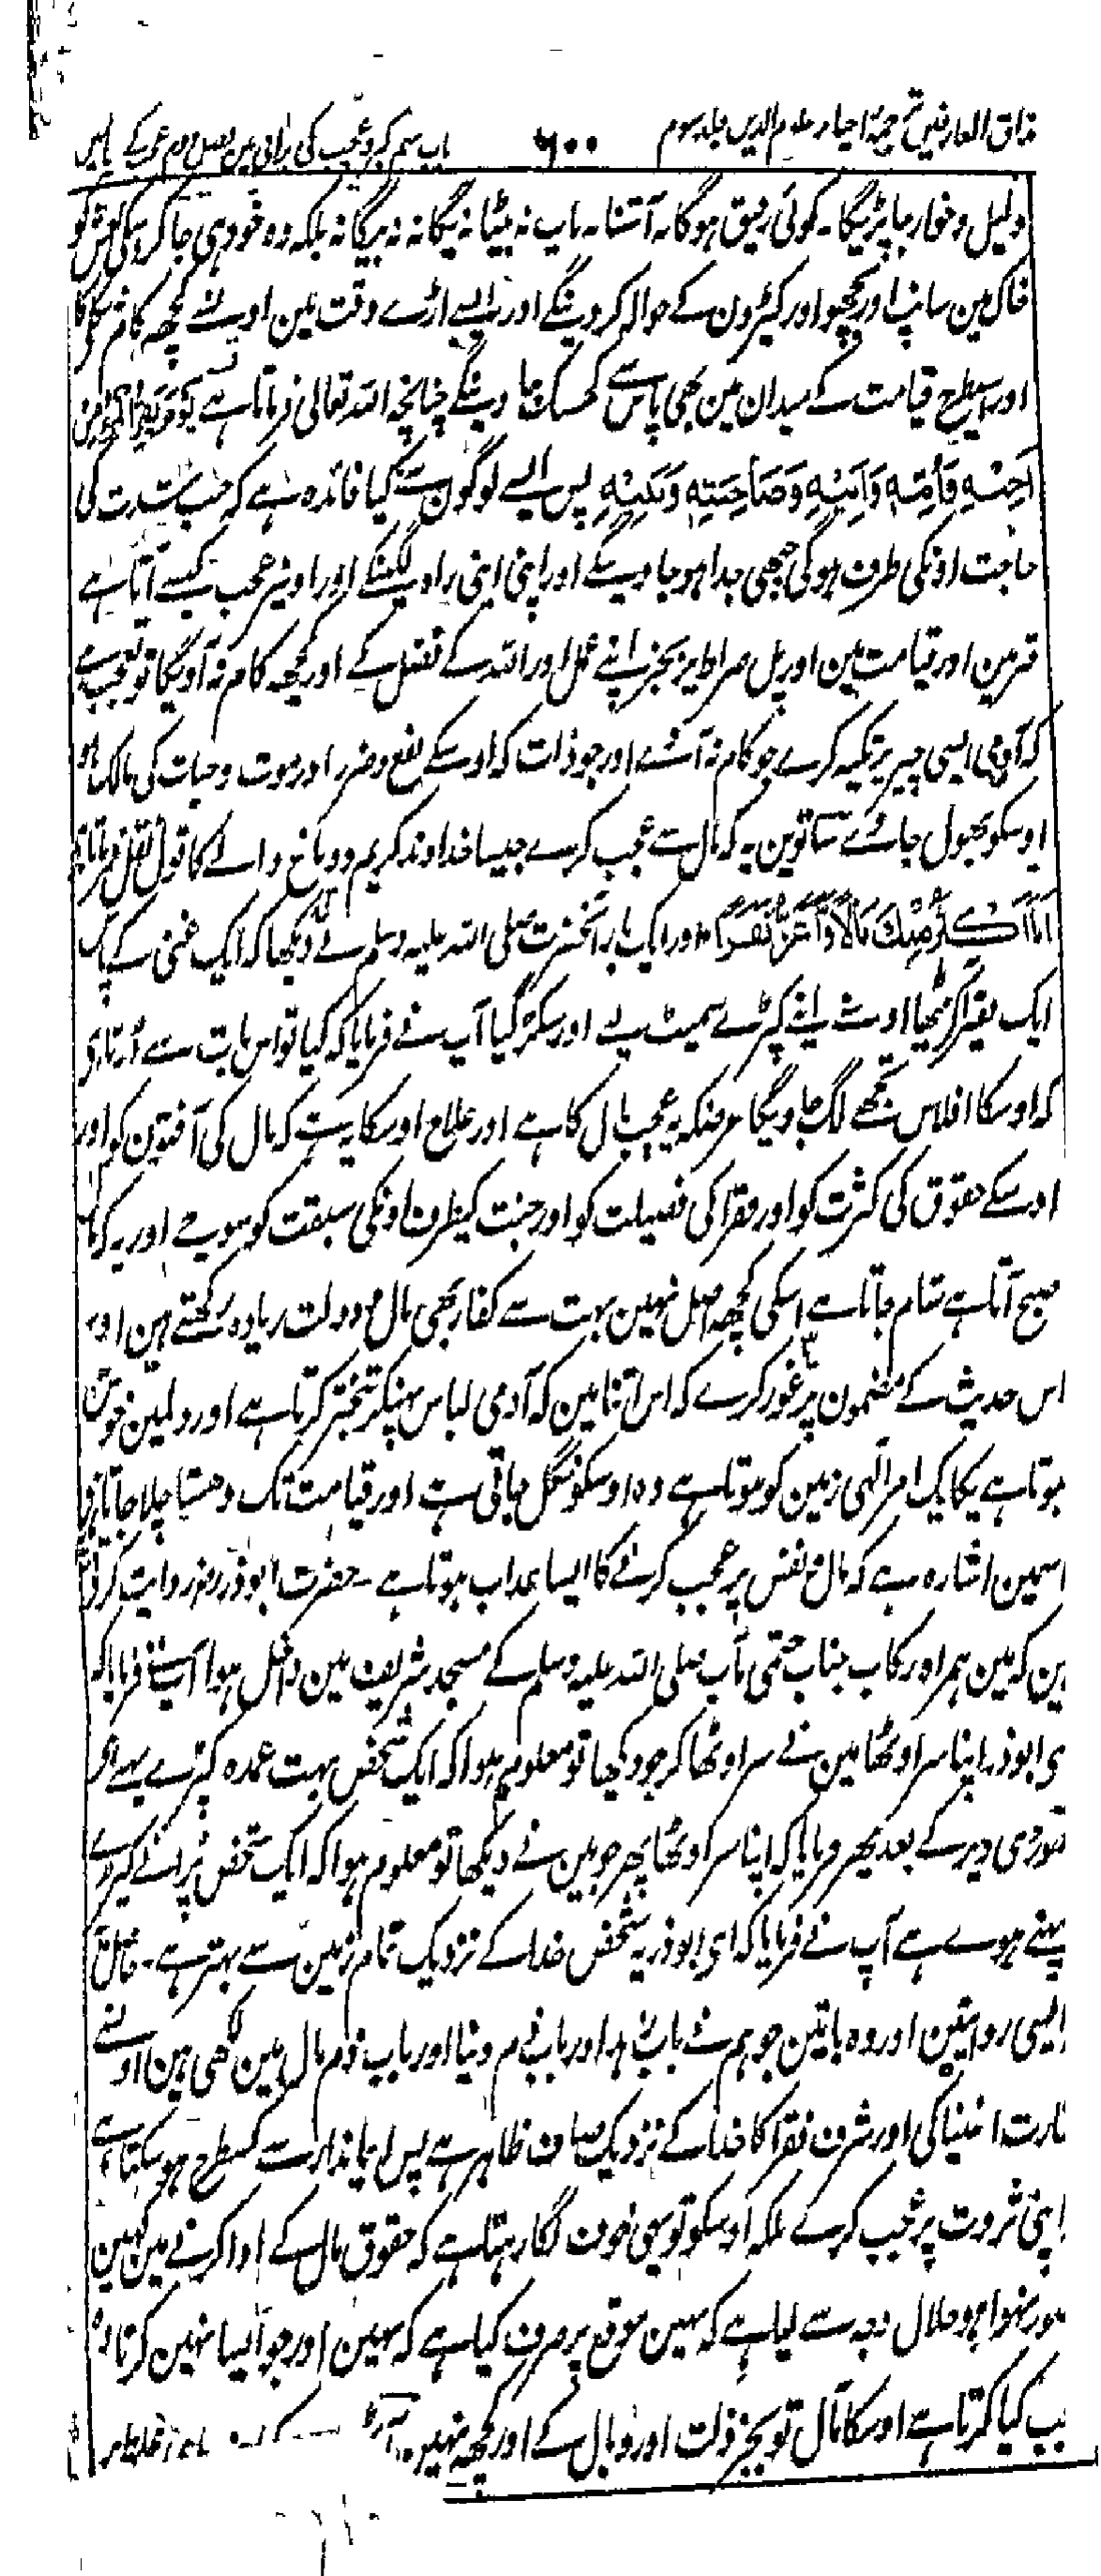 مذاق العارفین ترجمۂ احیاء علوم الدین جلد سوم ٦٠٠ باب نہم کبر و عجب کی برائی میں فصل دوم عجب کے
ذلیل و خوار جا پڑیگا ۔ کوئی رفیق ہوگا نہ آشنا ۔ نہ باپ نہ بیٹا نہ یگانہ نہ بیگانہ بلکہ وہ خود ہی جا کر
خاک مین سانپ اور بچھو اور کیڑون کے حوالہ کر دینگے اور ایسے اڑے وقت مین اونسے کچھ کام
اور اسیطرح قیامت کے میدان مین بھی پاس سے کھسک جا وینگے چنانچہ اللہ تعالی فرماتا ہے یَوْمَ یَفِرُّ الْمَرْءُ مِنْ
اَخِیْہِ وَاُمِّہٖ وَاَبِیْہِ وَصَاحِبَتِہٖ وَبَنِیْہِ پس ایسے لوگون سے کیا فائدہ ہے کہ جب شدت کی
حاجت اونکی طرف ہو گی جبھی جدا ہو جاوینگے اور اپنی اپنی راہ لینگے اور اونپر عجب کیسے آتا ہے
قبر مین اور قیامت مین اور پل صراط پر بجز اپنے عمل اور اللہ کے فضل کے اور کچھ کام نہ آویگا تو تعجب ہے
کہ آدمی ایسی چیز پر تکیہ کرے جو کام نہ آئے اور جو ذات کہ اوسکے نفع و ضرر اور موت و حیات کی مالک ہو
اوسکو بھول جائے ساتوین یہ کہ مال سے عجب کرے جیسا خداوند کریم دو باغ والے کا قول نقل فرماتا ہے
اَنَا اَکْثَرُ مِنْکَ مَالًا وَّاَعَزُّ نَفَرًا اور ایک بار آنحضرت صلی اللہ علیہ وسلم نے دیکھا کہ ایک غنی کے پاس
ایک فقیر آکر بیٹھا اوسنے اپنے کپڑے سمیٹ لیے اور سکڑ گیا آپ نے فرمایا کہ کیا تو اس بات سے ڈرتا ہی
کہ اوسکا افلاس تجھے لگ جاویگا غرضکہ یہ عجب مال کا ہے اور علاج اوسکا یہ ہے کہ مال کی آفتون کو اور
اوسکے حقوق کی کثرت کو اور فقرا کی فضیلت کو اور جنت کیطرف اونکی سبقت کو سوچے اور یہ کہ
صبح آتا ہے شام جاتا ہے اسکی کچھ اصل نہین بہت سے کفار بھی مال و دولت زیادہ رکھتے ہین اور
اس حدیث کے مضمون پر غور کرے کہ اس اثنا مین کہ آدمی لباس پہنکر تبختر کرتا ہے اور دلمین خوش
ہوتا ہے یکایک امر الٰہی زمین کو ہوتا ہے وہ اوسکو نگل جاتی ہے اور قیامت تک دھنستا چلا جاتا ہی
اسمین اشارہ ہے کہ مال و نفس پر عجب کرنے کا ایسا عذاب ہوتا ہے ۔ حضرت ابوذر رضہ روایت کرتے
ہین کہ مین ہمراہ رکاب جناب ختمی مآب صلی اللہ علیہ وسلم کے مسجد شریف مین داخل ہوا آپنے فرمایا کہ
ای ابوذر اپنا سر اوٹھا مین نے سر اوٹھا کر جو دیکھا تو معلوم ہوا کہ ایک شخص بہت عمدہ کپڑے پہنے ہے
تھوڑی دیر کے بعد پھر فرمایا کہ اپنا سر اوٹھا پھر جو مین نے دیکھا تو معلوم ہوا کہ ایک شخص پُرانے کپڑے
پہنے ہوے ہے آپ نے فرمایا کہ ای ابوذر یہ شخص خدا کے نزدیک تمام زمین سے بہتر ہے ۔
ایسی روایتین اور وہ باتین جو ہم نے باب زہد اور باب ذم دنیا اور باب ذم مال مین لکھی ہین اونسے
حقارت اغنیا کی اور شرف فقرا کا خدا کے نزدیک صاف ظاہر ہے پس ایماندار سے کسطرح ہو سکتا ہے
اپنی ثروت پر عجب کرے بلکہ اوسکو تو یہی خوف لگا رہتا ہے کہ حقوق مال کے ادا کرنے مین کہین
قصور نہوا ہو حلال وجہ سے لیا ہے کہ نہین موقع پر صرف کیا ہے کہ نہین اور جو ایسا نہین کرتا
عجب کیا کرتا ہے اوسکا مآل تو بجز ذلت اور وبال کے اور کچھ نہین